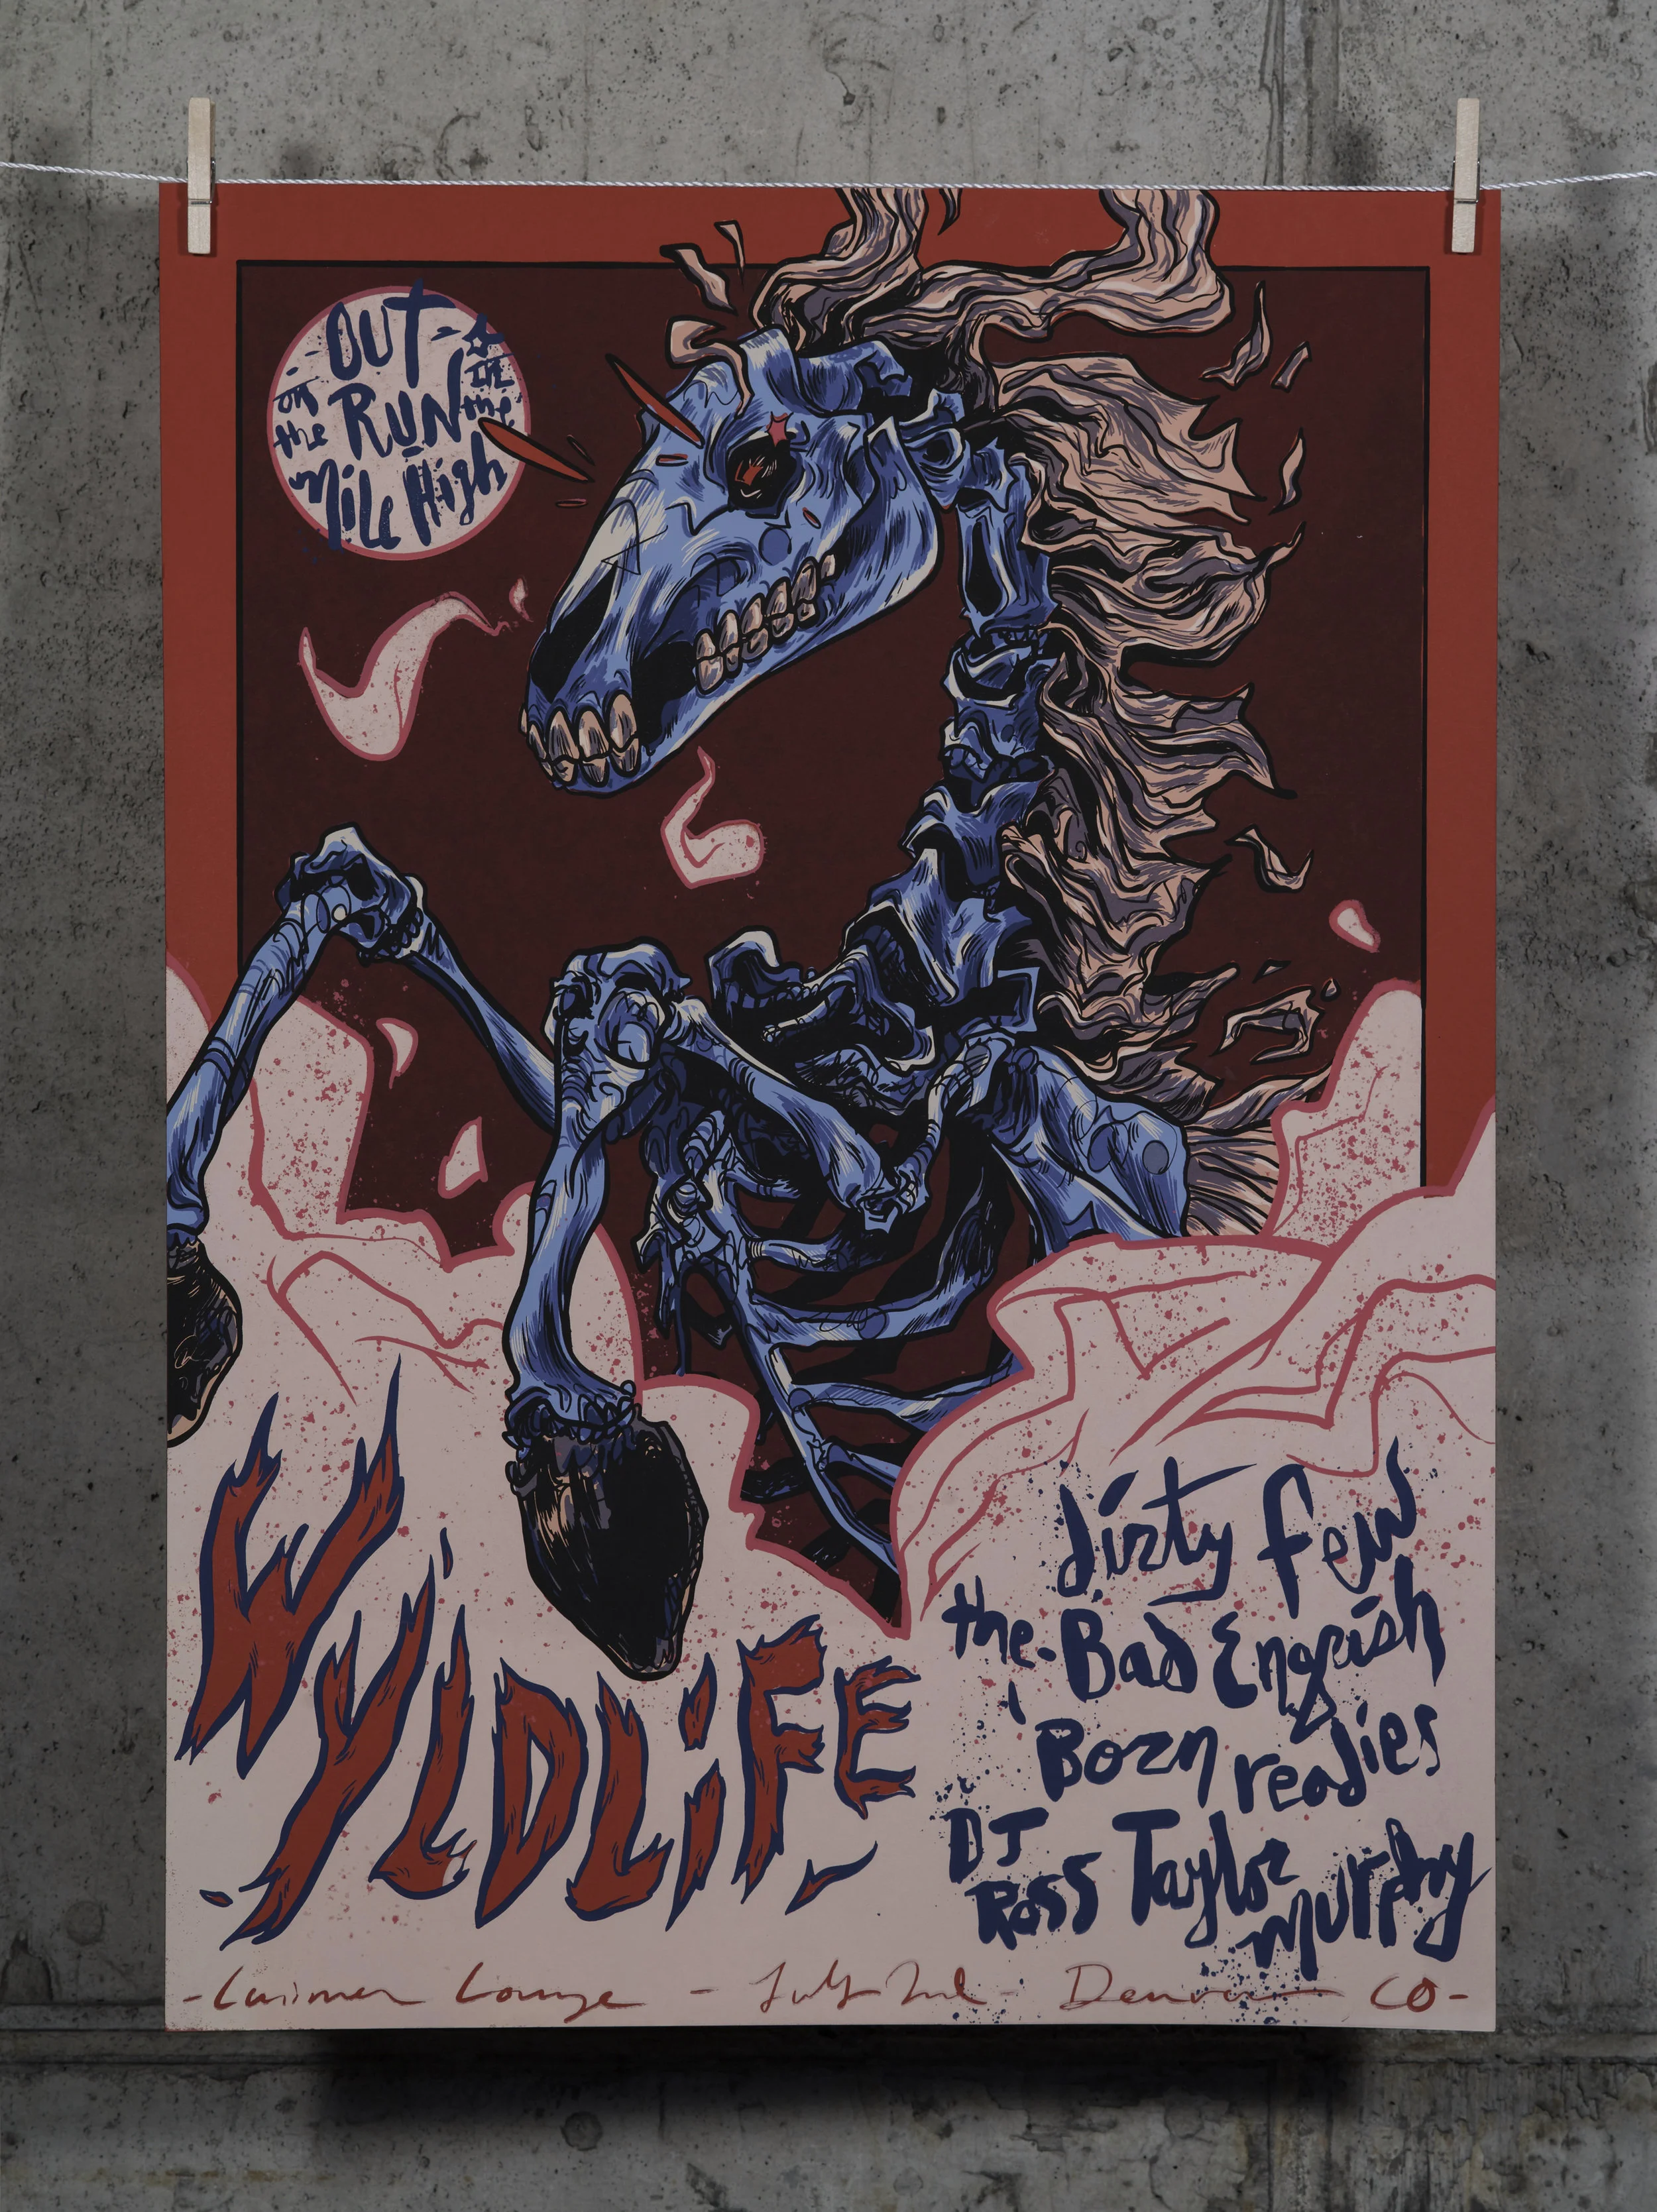 -OUT-
on the RUN in the
Mile High
WYLDLiFE
dirty few
the Bad Engrish
Born readies
DJ
Ross Taylor
Murphy
- Larimer Lounge - July 2nd - Denver CO -